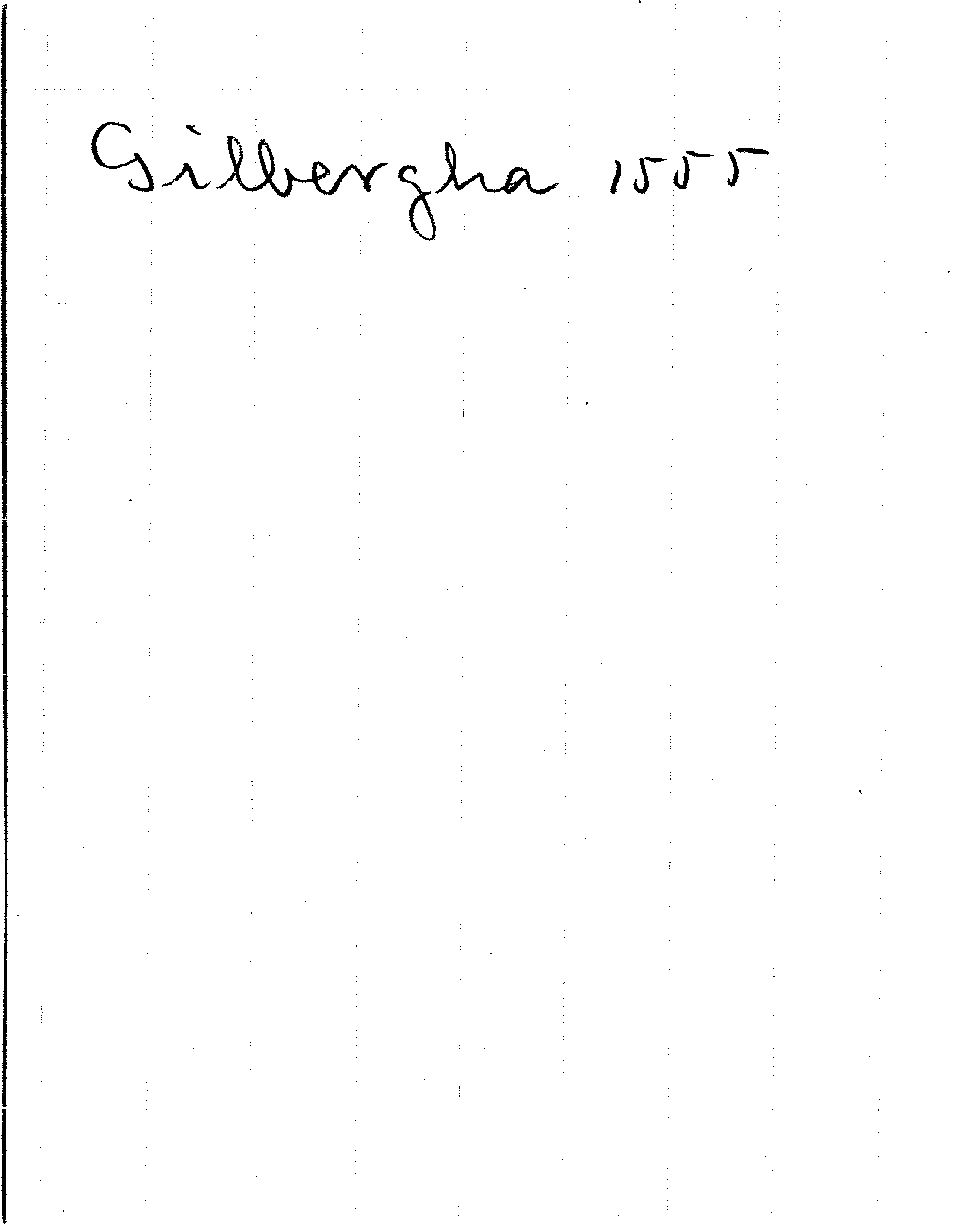 Gilbergha 1555